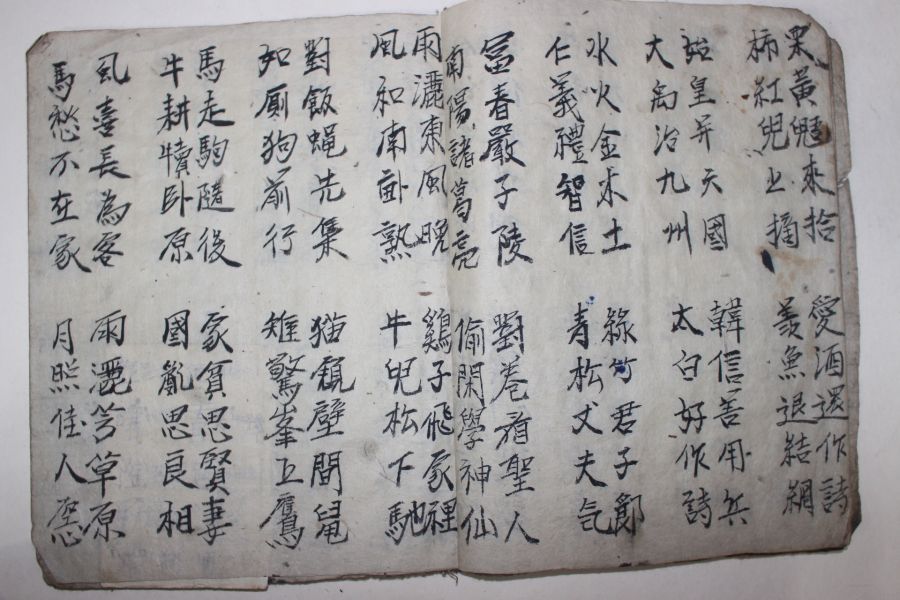 栗黃來拾
柿紅兒上摘
愛酒還作詩
羨魚退結網
始皇并天國
大禹治九州
韓信善用兵
太白好作詩
水火金木土
仁義禮智信
綠竹君子節
青松丈夫气
富春嚴子陵
南陽諸葛亮
對卷看聖人
偷閑學神仙
雨灑東風晚
風和南畝熟
鷄子飛家裡
牛兒松下馳
對飯蝇先集
如厠狗前行
猫窺壁間鼠
雉驚峯上鷹
馬走駒隨後
牛耕犢卧原
家貧思賢妻
國亂思良相
風喜長為客
馬愁不在家
雨灑芳草原
月照佳人